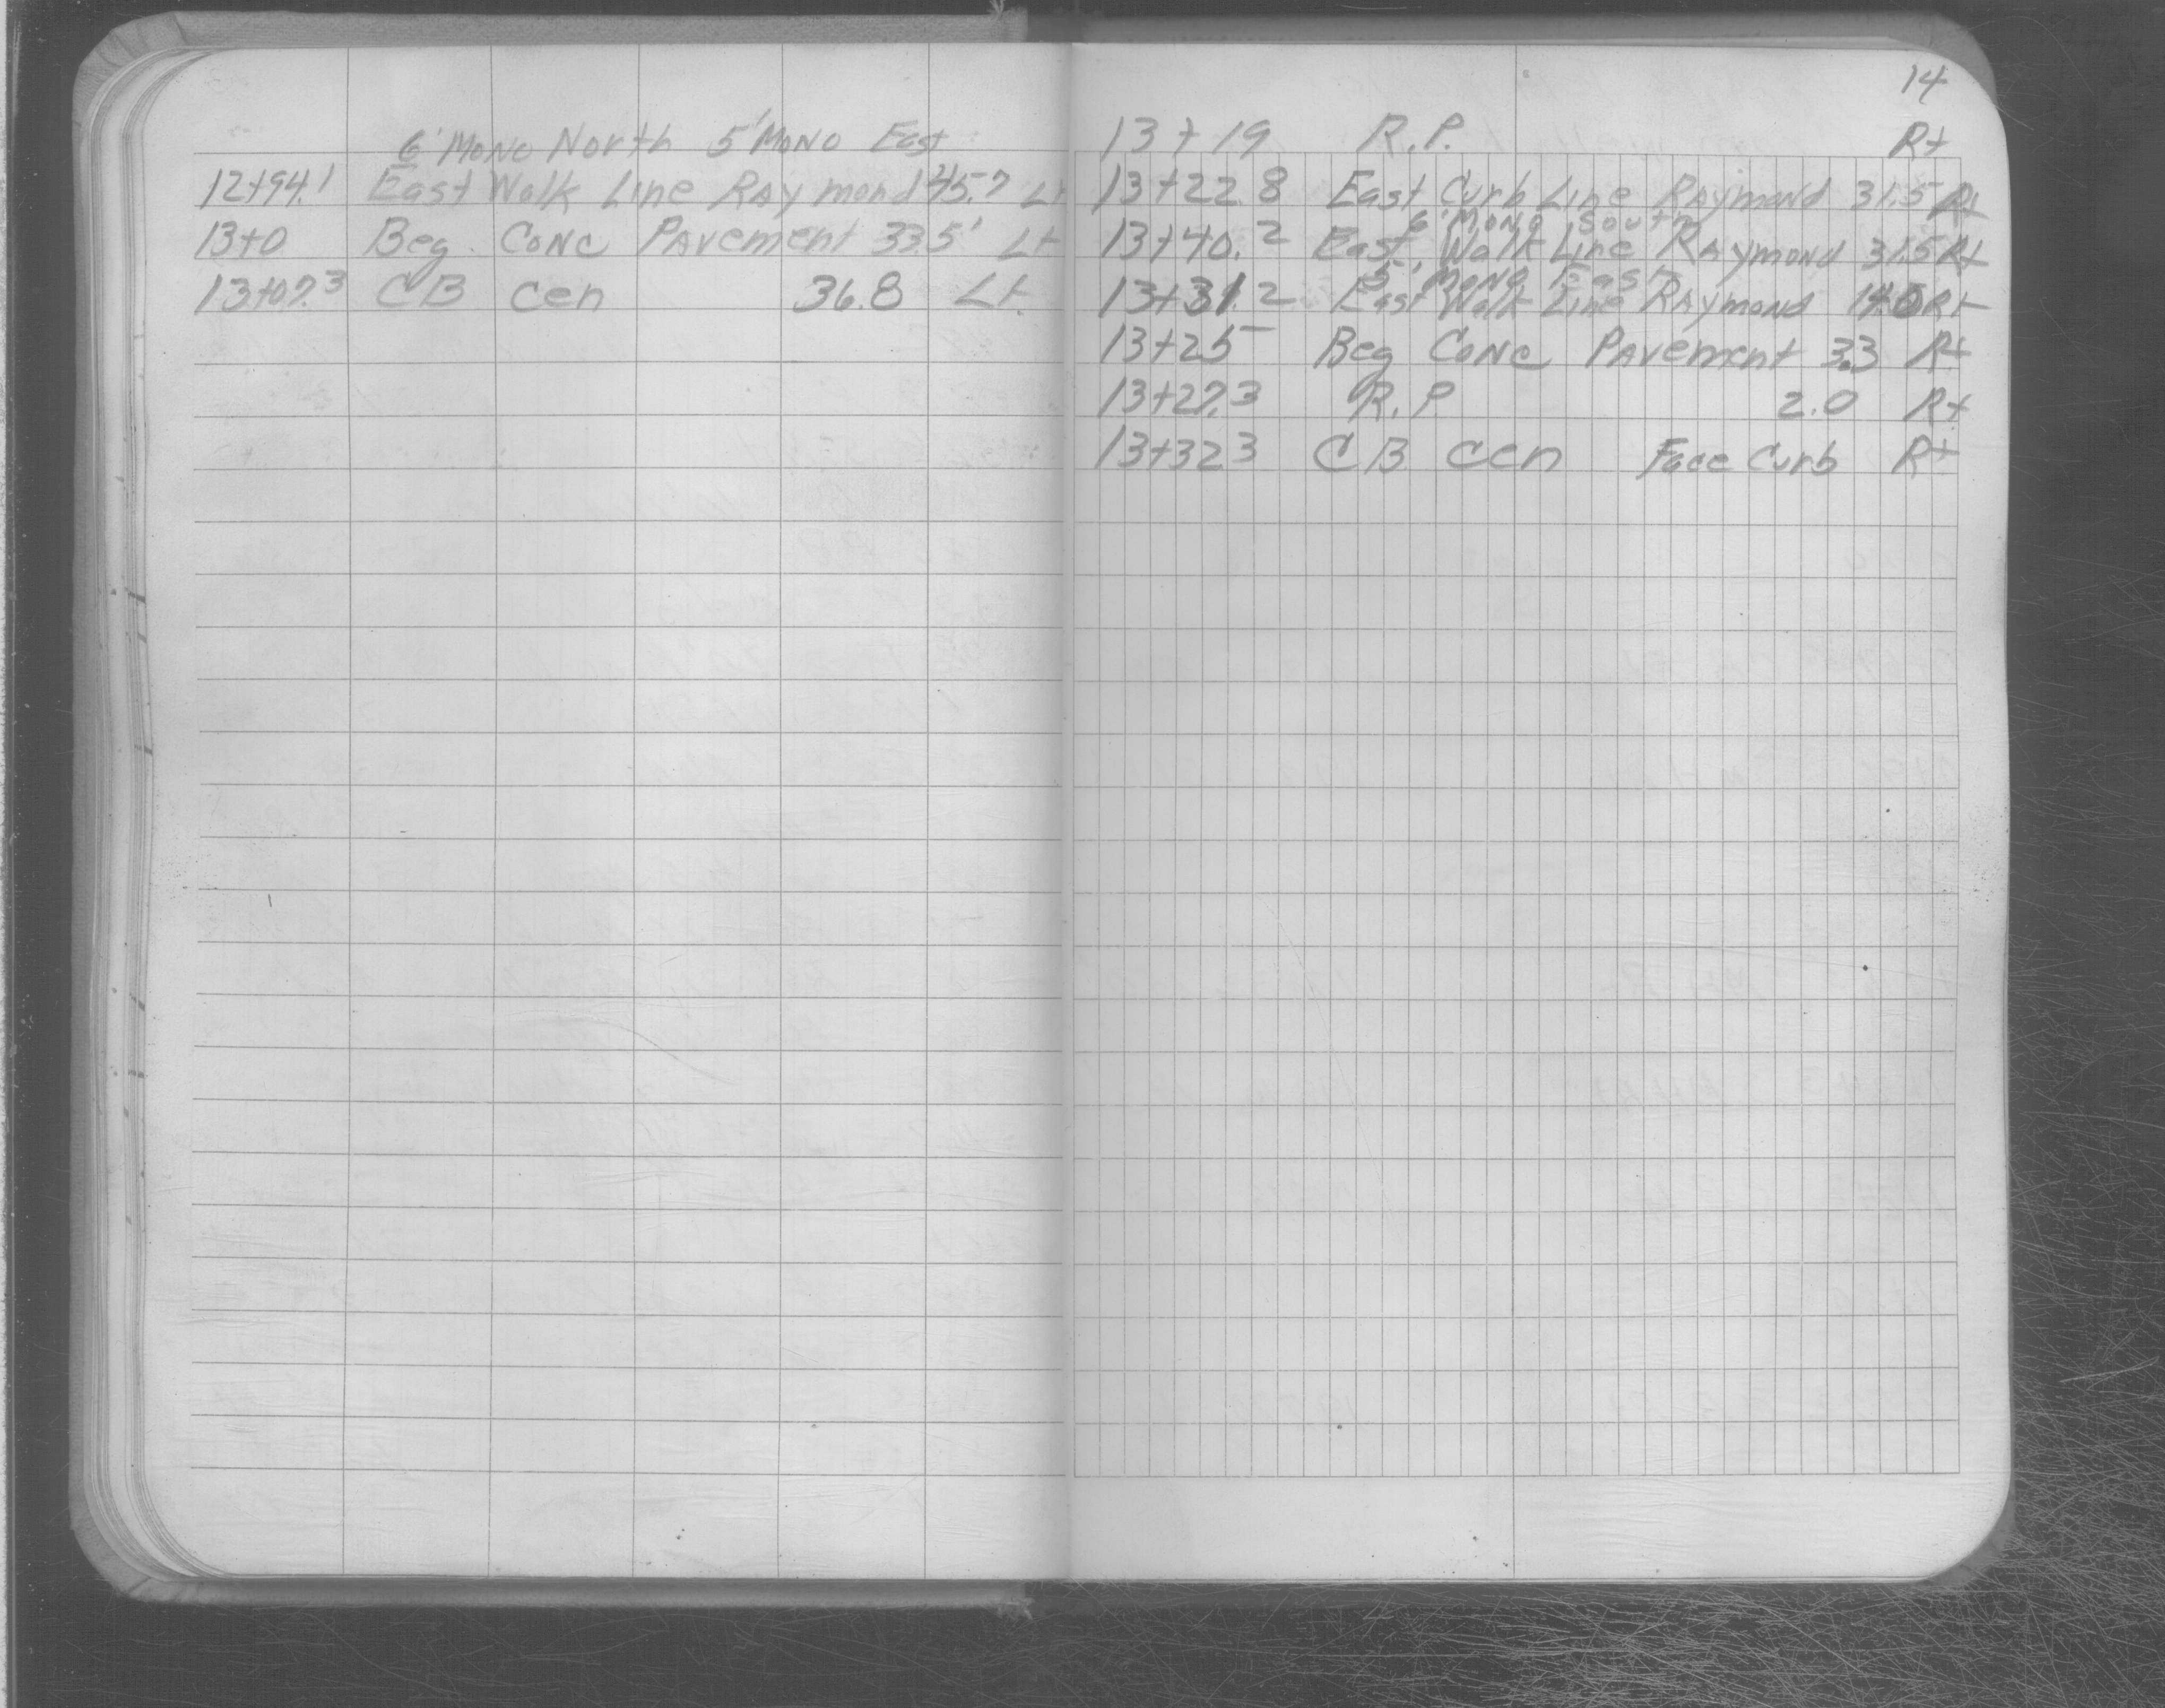 6' Mono North 5' Mono East
12+94.1 East Walk Line Raymond 45.7 Lt
13+0 Beg. Conc Pavement 33.5' Lt
13+07.3 CB Cen 36.8 Lt.
14
13+19 R.P. Rt
13+22.8 East Curb Line Raymond 31.5 Rt
6' Mono South
13+40.2 East Walk Line Raymond 31.5 Rt
5' Mono East
13+31.2 East Walk Line Raymond Rt
13+25 Beg Conc Pavement 3.3 Rt
13+27.3 R.P 2.0 Rt
13+32.3 CB Cen Face Curb Rt